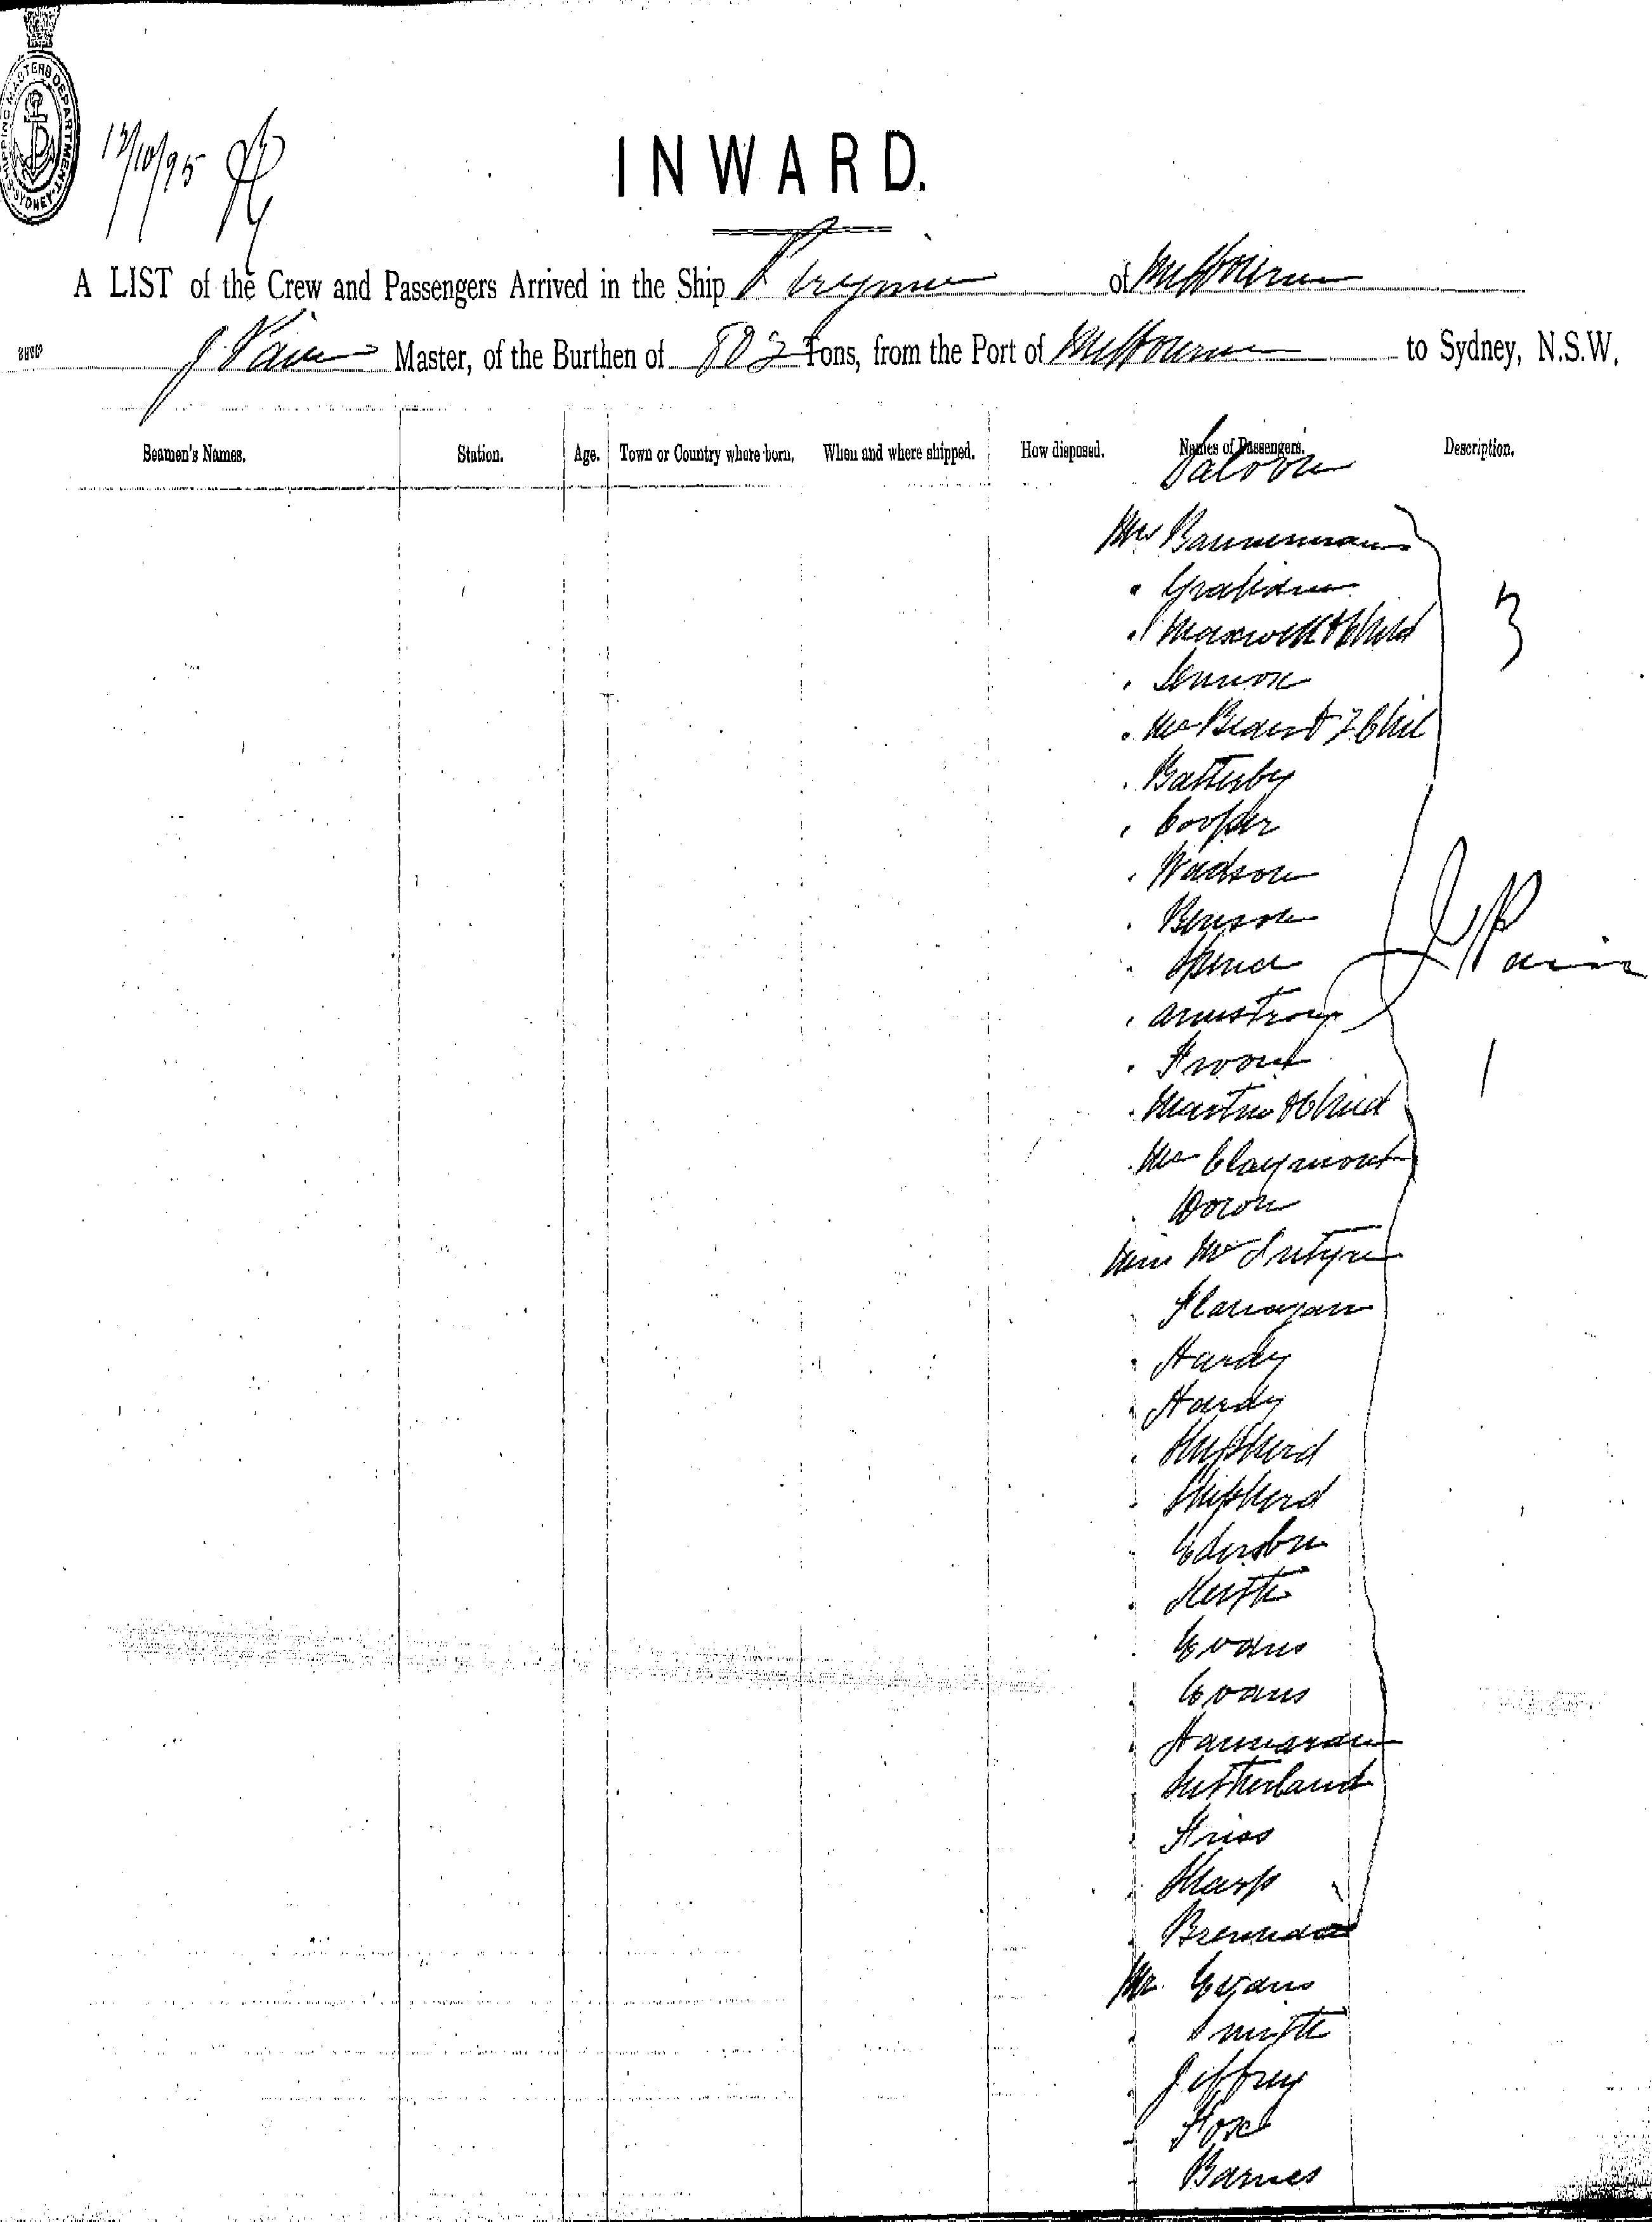 SHIPPING MASTERS DEPARTMENT. SYDNEY
12/10/95
INWARD.
A LIST of the Crew and Passengers Arrived in the Ship Peregrine of Melbourne
J Pain Master, of the Burthen of Tons, from the Port of Melbourne to Sydney, N.S.W.
Seamen's Names. Station. Age. Town or Country where born. When and where shipped. How disposed. Names of Passengers. Description.
Saloon
Mrs Bannerman
" Graham 3
" Maxwell & Child
" Lennox
" & 2 Chil
" Batterby
" Cooper
" Watson
" Benson J Pain
" Spence
" Armstrong
" 1
" Martin & Child
" Claymont
" Doron
Miss McIntyre
" Flanagan
" Hardy
" Hardy
" Shepherd
" Shepherd
"
" Keith
" Evans
" Evans
"
" Sutherland
"
" Sharp
" Brennan
Mr. Evans
" Smith
" Jeffrey
" Fox
" Barnes